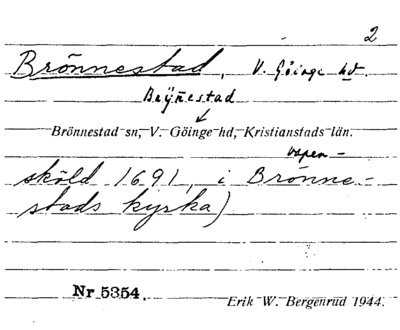 2
Brönnestad, V. Göinge hd.
Brÿnestad
Brönnestad sn, V. Göinge hd, Kristianstads län.
vapen-
sköld 1691, i Brönne-
stads kyrka)
Nr 5354.
Erik W. Bergenrud 1944.